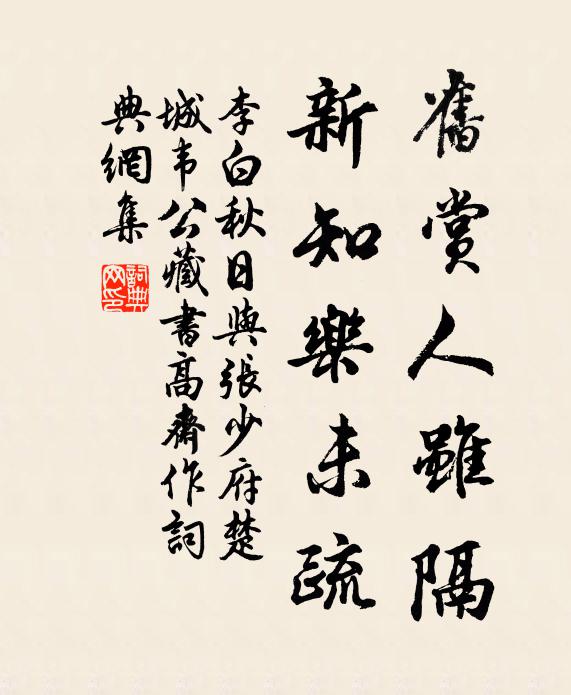 舊賞人雖隔
新知樂未疏
李白秋日與張少府楚
城韦公藏書高齋作詞
典網集
詞典网印